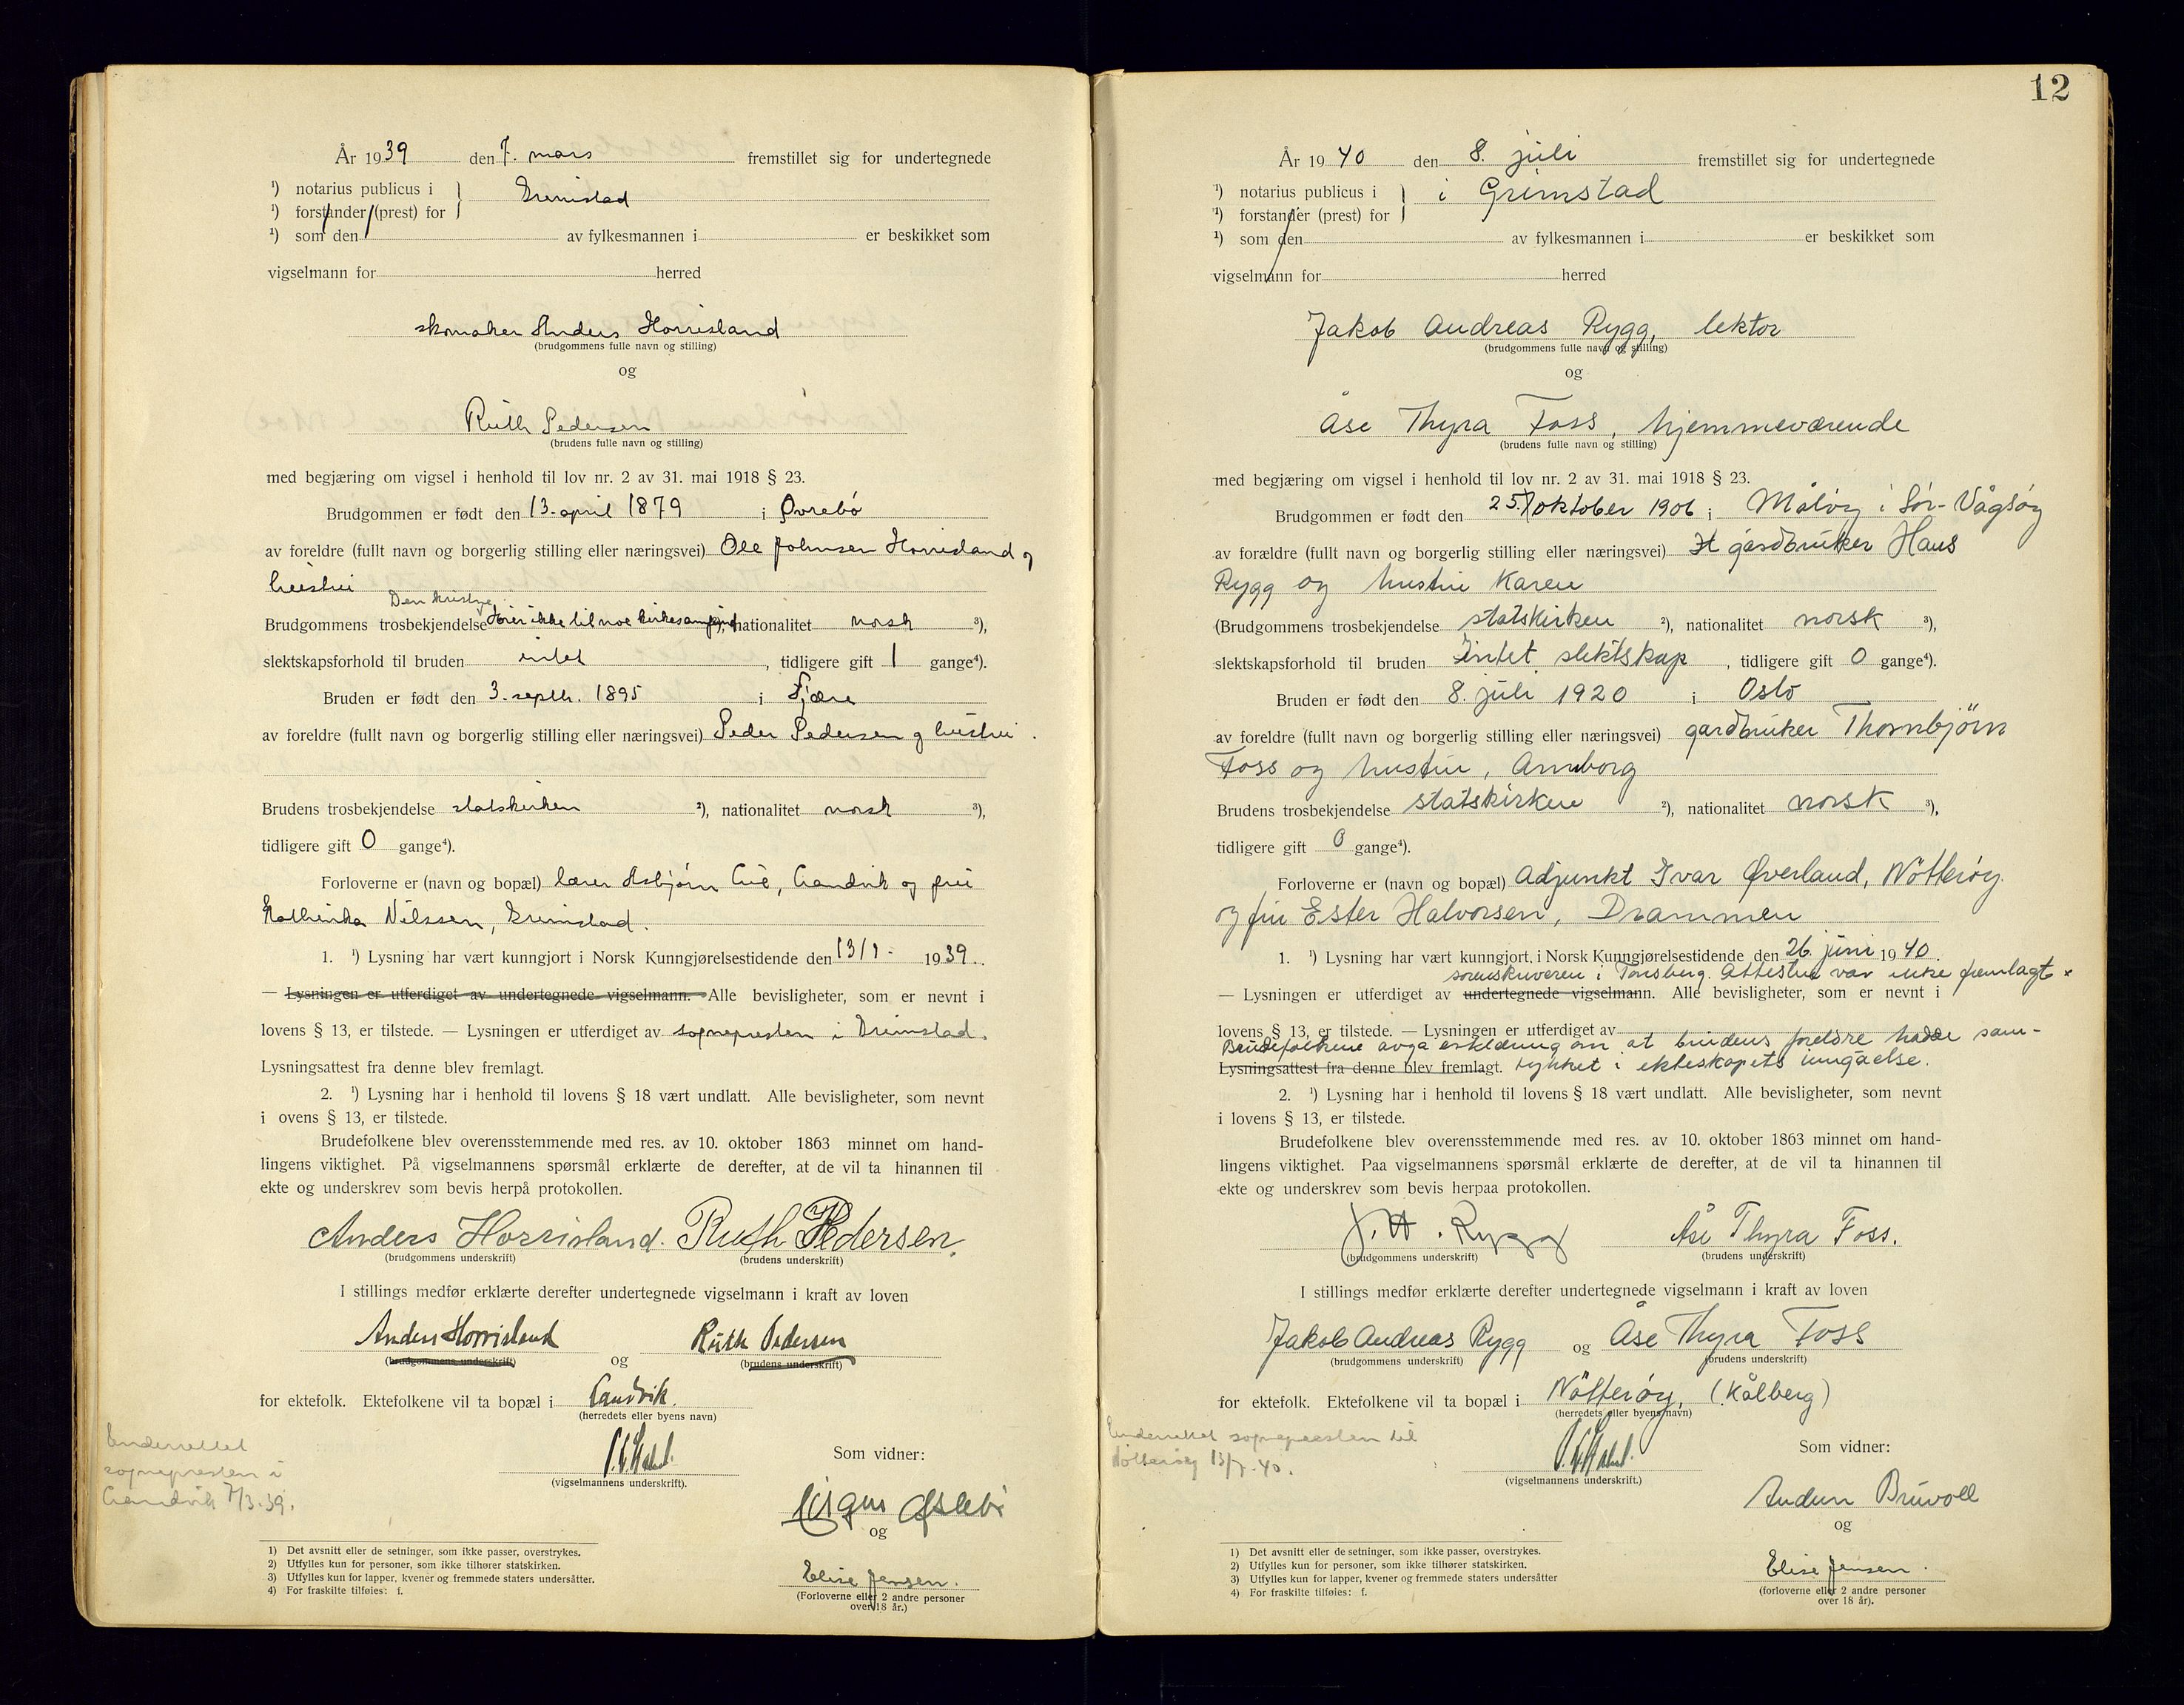 År 1939 den 7. mars fremstillet sig for undertegnede
¹) notarius publicus i
Grimstad
¹) forstander (prest) for
¹) som den av fylkesmannen i er beskikket som
vigselmann for herred
skomaker Anders Horrisland
(brudgommens fulle navn og stilling)
og
Ruth Pedersen
(brudens fulle navn og stilling)
med begjæring om vigsel i henhold til lov nr. 2 av 31. mai 1918 § 23.
Brudgommen er født den 13. april 1879 i Øvrebø
av foreldre (fullt navn og borgerlig stilling eller næringsvei) Ole Johnsen Horrisland og
hustru
Den kristne.
Brudgommens trosbekjendelse Hører ikke til noe kirkesamfund ²), nationalitet norsk ³),
slektskapsforhold til bruden intet, tidligere gift 1 gange⁴).
Bruden er født den 3. septbr. 1895 i Fjære
av foreldre (fullt navn og borgerlig stilling eller næringsvei) Peder Pedersen og hustru.
Brudens trosbekjendelse statskirken ²), nationalitet norsk ³),
tidligere gift 0 gange⁴).
Forloverne er (navn og bopæl) lærer Asbjørn Lie, Landvik og fru
Kathinka Nilssen, Grimstad.
1. ¹) Lysning har vært kunngjort i Norsk Kunngjørelsestidende den 13/1- 1939.
— Lysningen er utferdiget av undertegnede vigselmann. Alle bevisligheter, som er nevnt i
lovens § 13, er tilstede. — Lysningen er utferdiget av sognepresten i Grimstad.
Lysningsattest fra denne blev fremlagt.
2. ¹) Lysning har i henhold til lovens § 18 vært undlatt. Alle bevisligheter, som nevnt
i ovens § 13, er tilstede.
Brudefolkene blev overensstemmende med res. av 10. oktober 1863 minnet om hand-
lingens viktighet. På vigselmannens spørsmål erklærte de derefter, at de vil ta hinannen til
ekte og underskrev som bevis herpå protokollen.
Anders Horrisland. Ruth Pedersen.
(brudgommens underskrift) (brudens underskrift)
I stillings medfør erklærte derefter undertegnede vigselmann i kraft av loven
Anders Horrisland og Ruth Pedersen
(brudgommens underskrift) (brudens underskrift)
for ektefolk. Ektefolkene vil ta bopæl i Landvik.
(herredets eller byens navn)
Underrettet
sognepresten i
Landvik 7/3.39.
(vigselmannens underskrift).
Som vidner:
og
Elise Jensen.
(Forloverne eller 2 andre personer
over 18 år.)
1) Det avsnitt eller de setninger, som ikke passer, overstrykes.
2) Utfylles kun for personer, som ikke tilhører statskirken.
3) Utfylles kun for lapper, kvener og fremmede staters undersåtter.
4) For fraskilte tilføies: f.
12
År 1940 den 8. juli fremstillet sig for undertegnede
¹) notarius publicus i
i Grimstad
¹) forstander (prest) for
¹) som den av fylkesmannen i er beskikket som
vigselmann for herred
Jakob Andreas Rygg, lektor
(brudgommens fulle navn og stilling)
og
Åse Thyra Foss, hjemmeværende
(brudens fulle navn og stilling)
med begjæring om vigsel i henhold til lov nr. 2 av 31. mai 1918 § 23.
Brudgommen er født den 25. oktober 1906 i Måløy i Sør-Vågsøy
av forældre (fullt navn og borgerlig stilling eller næringsvei) H gårdbruker Hans
Rygg og hustru Karen
(Brudgommens trosbekjendelse statskirken ²), nationalitet norsk ³),
slektskapsforhold til bruden Intet slektskap, tidligere gift 0 gange⁴).
Bruden er født den 8. juli 1920 i Oslo
av foreldre (fullt navn og borgerlig stilling eller næringsvei) gardbruker Thornbjørn
Foss og hustru, Annborg
Brudens trosbekjendelse statskirken ²), nationalitet norsk ³),
tidligere gift 0 gange⁴).
Forloverne er (navn og bopæl) Adjunkt Ivar Øverland, Nøtterøy
og fru Ester Halvorsen, Drammen
1. ¹) Lysning har vært kunngjort i Norsk Kunngjørelsestidende den 26. juni 1940.
sorenskriveren i Tønsberg. Attesten var ikke fremlagt x
— Lysningen er utferdiget av undertegnede vigselmann. Alle bevisligheter, som er nevnt i
lovens § 13, er tilstede. — Lysningen er utferdiget av
Brudefolkene avga erklæring om at brudens foreldre hadde sam-
Lysningsattest fra denne blev fremlagt. tykket i ekteskapets inngåelse.
2. ¹) Lysning har i henhold til lovens § 18 vært undlatt. Alle bevisligheter, som nevnt
i lovens § 13, er tilstede.
Brudefolkene blev overensstemmende med res. av 10. oktober 1863 minnet om hand-
lingens viktighet. Paa vigselmannens spørsmål erklærte de derefter, at de vil ta hinannen til
ekte og underskrev som bevis herpaa protokollen.
J. A. Rygg Åse Thyra Foss.
(brudgommens underskrift) (brudens underskrift)
I stillings medfør erklærte derefter undertegnede vigselmann i kraft av loven
Jakob Andreas Rygg og Åse Thyra Foss
(brudgommens underskrift) (brudens underskrift)
for ektefolk. Ektefolkene vil ta bopæl i Nøtterøy, (Kålberg)
(herredets eller byens navn)
Underrettet sognepresten til
Nøtterøy 13/7.40.
(vigselmannens underskrift.)
Som vidner:
Anders Bruvoll
og
Elise Jensen.
(forloverne eller 2 andre personer
over 18 år).
1) Det avsnitt eller de setninger, som ikke passer, overstrykes.
2) Utfylles kun for personer, som ikke tilhører statskirken.
3) Utfylles kun for lapper, kvener og fremmede staters undersåtter
4) For fraskilte tilføies: f.